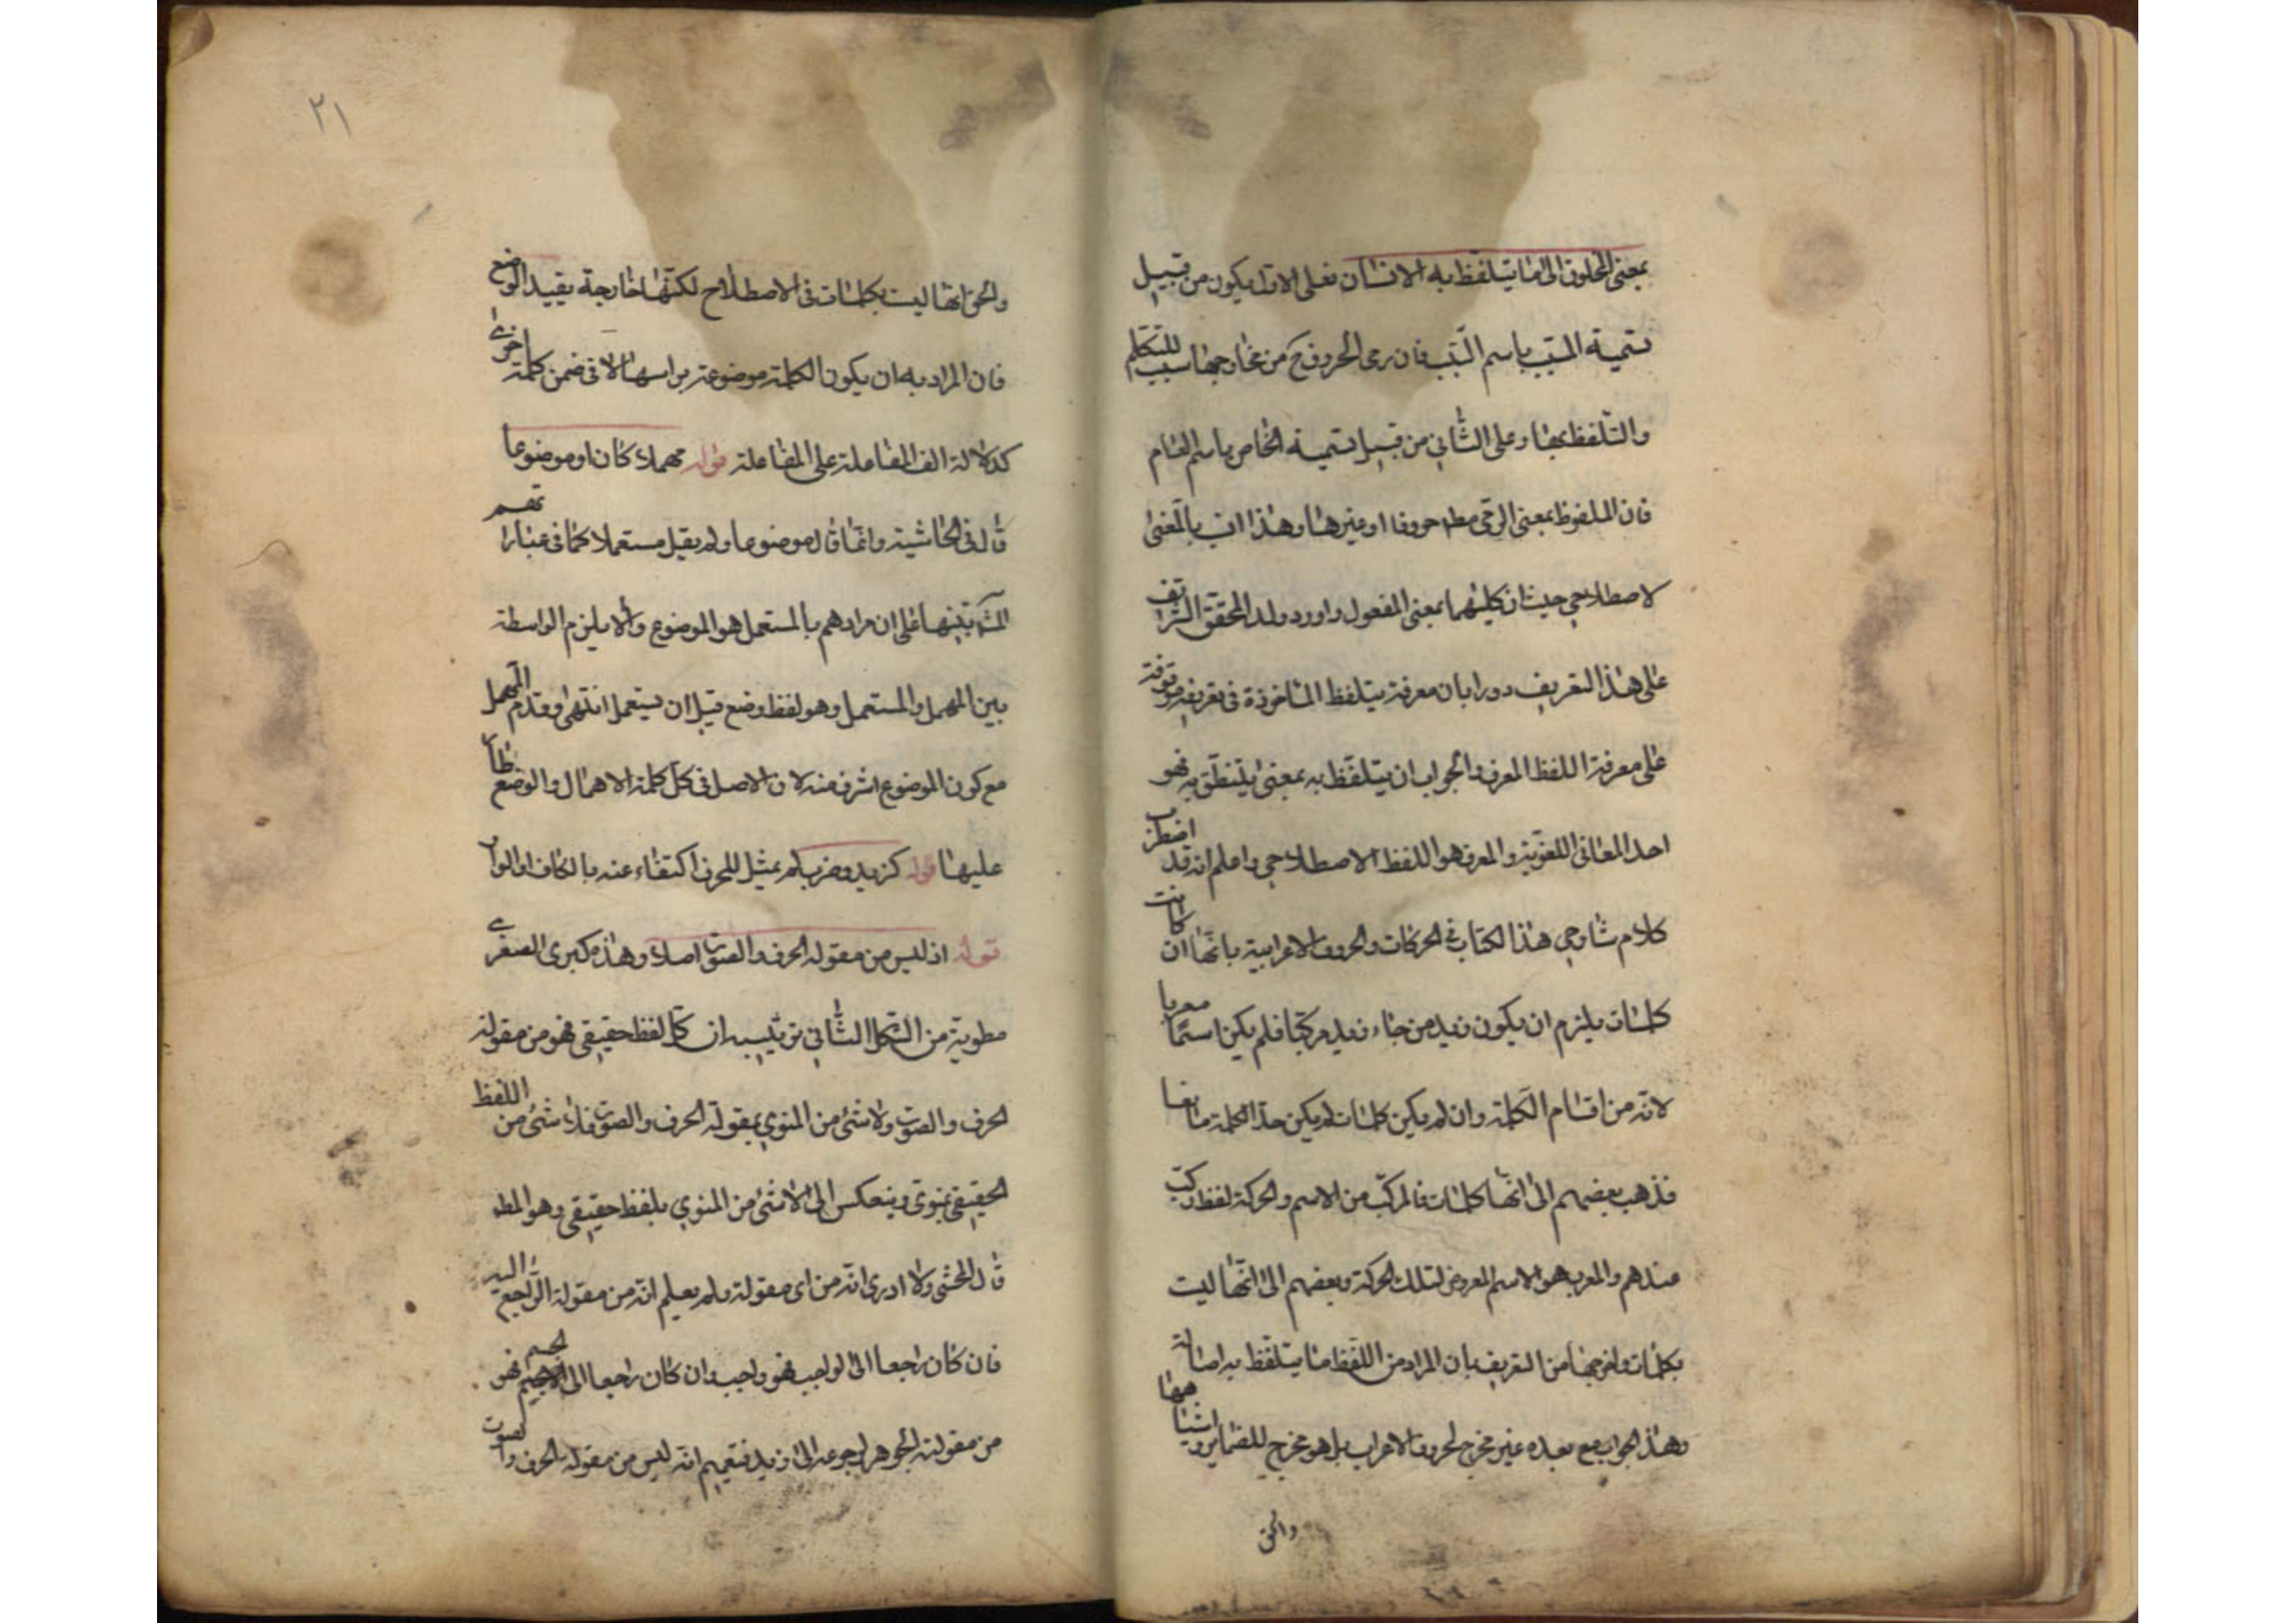 بمعنى المخلوق الى ما يتلفظ به الانسان فعلى الاول يكون من قبيل
تسمية المسبب باسم السبب فان رمى الحروف من مخارجها سبب للتكلم
والتلفظ بها وعلى الثاني من قبيل تسمية الخاص باسم العام
فان الملفوظ بمعنى الرمى مط حروفا او غيرها وهذا انسب بالمعنى
لاصطلاحي حيث ان كليهما بمعنى المفعول واورد ولد المحقق الشريف
على هذا التعريف دورا بان معرفة يتلفظ الماخوذة في تعريفه موقوفة
على معرفة اللفظ المعرف والجواب ان يتلفظ به بمعنى يتنطق به فهو
احد المعاني اللغوية والمعرف هو اللفظ الاصطلاحي واعلم انه قد اضطرب
كلام شارحي هذا الكتاب في الحركات والحروف الاعرابية بانها ان كانت
كلمات يلزم ان يكون زيد من جاء زيد مركبا فلم يكن اسما معربا
لانه من اقسام الكلمة وان لم يكن كلمات لم يكن حد الكلمة مانعا
فذهب بعضهم الى انها كلمات فالمركب من الاسم والحركة لفظ مركب
عندهم والمعرب هو الاسم المعروض لتلك الحركة وبعضهم الى انها ليست
بكلمات واخرجها من التعريف بان المراد من اللفظ ما يتلفظ به اصالة
وهذا الجواب مع بعده غير مخرج لحروف الاعراب بل هو مخرج للضماير واشباهها
والحق
٢١
والحق انها ليست بكلمات في الاصطلاح لكنها خارجة بقيد الوضع
فان المراد به ان يكون الكلمة موضوعة براسها لا في ضمن كلمة اخرى
كدلالة الف المفاعلة على المفاعلة قوله مهملا كان او موضوعا
قال في الحاشية وانما قال موضوعا ولم يقل مستعملا كما في عباراتهم
تنبيها على ان مرادهم بالمستعمل هو الموضوع والا يلزم الواسطة
بين المهمل والمستعمل وهو لفظ وضع قبل ان يستعمل انتهى وقدم المهمل
مع كون الموضوع اشرف منه لان الاصل في كل كلمة الاهمال والوضع طار
عليها قوله كزيد وضرب لم يمثل للحرف اكتفاء عنه بالكاف او الواو
قوله اذ ليس من مقولة الحرف والصوت اصلا وهذه كبرى الصغرى
مطوية من الشكل الثاني ترتيبه ان كل لفظ حقيقي فهو من مقولة
الحرف والصوت ولا شئ من المنوي بمقولة الحرف والصوت فلا شئ من اللفظ
الحقيقي بمنوي وينعكس الى لا شئ من المنوي بلفظ حقيقي وهو المط
قال المحشي ولا ادرى انه من اى مقولة ولم يعلم انه من مقولة الراجع اليه
فان كان راجعا الى الواجب فهو واجب وان كان راجعا الى الجسم فهو
من مقولة الجوهر لرجوعه الى زيد فتعميم انه ليس من مقولة الحرف والصوت